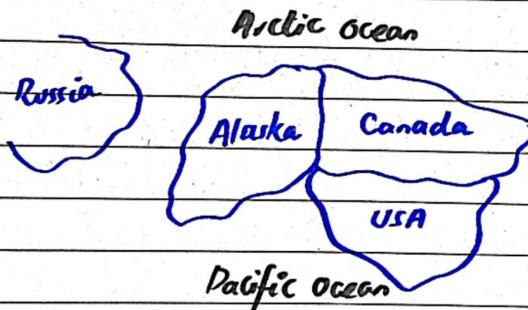 Arctic ocean
Russia
Alaska
Canada
USA
Pacific ocean